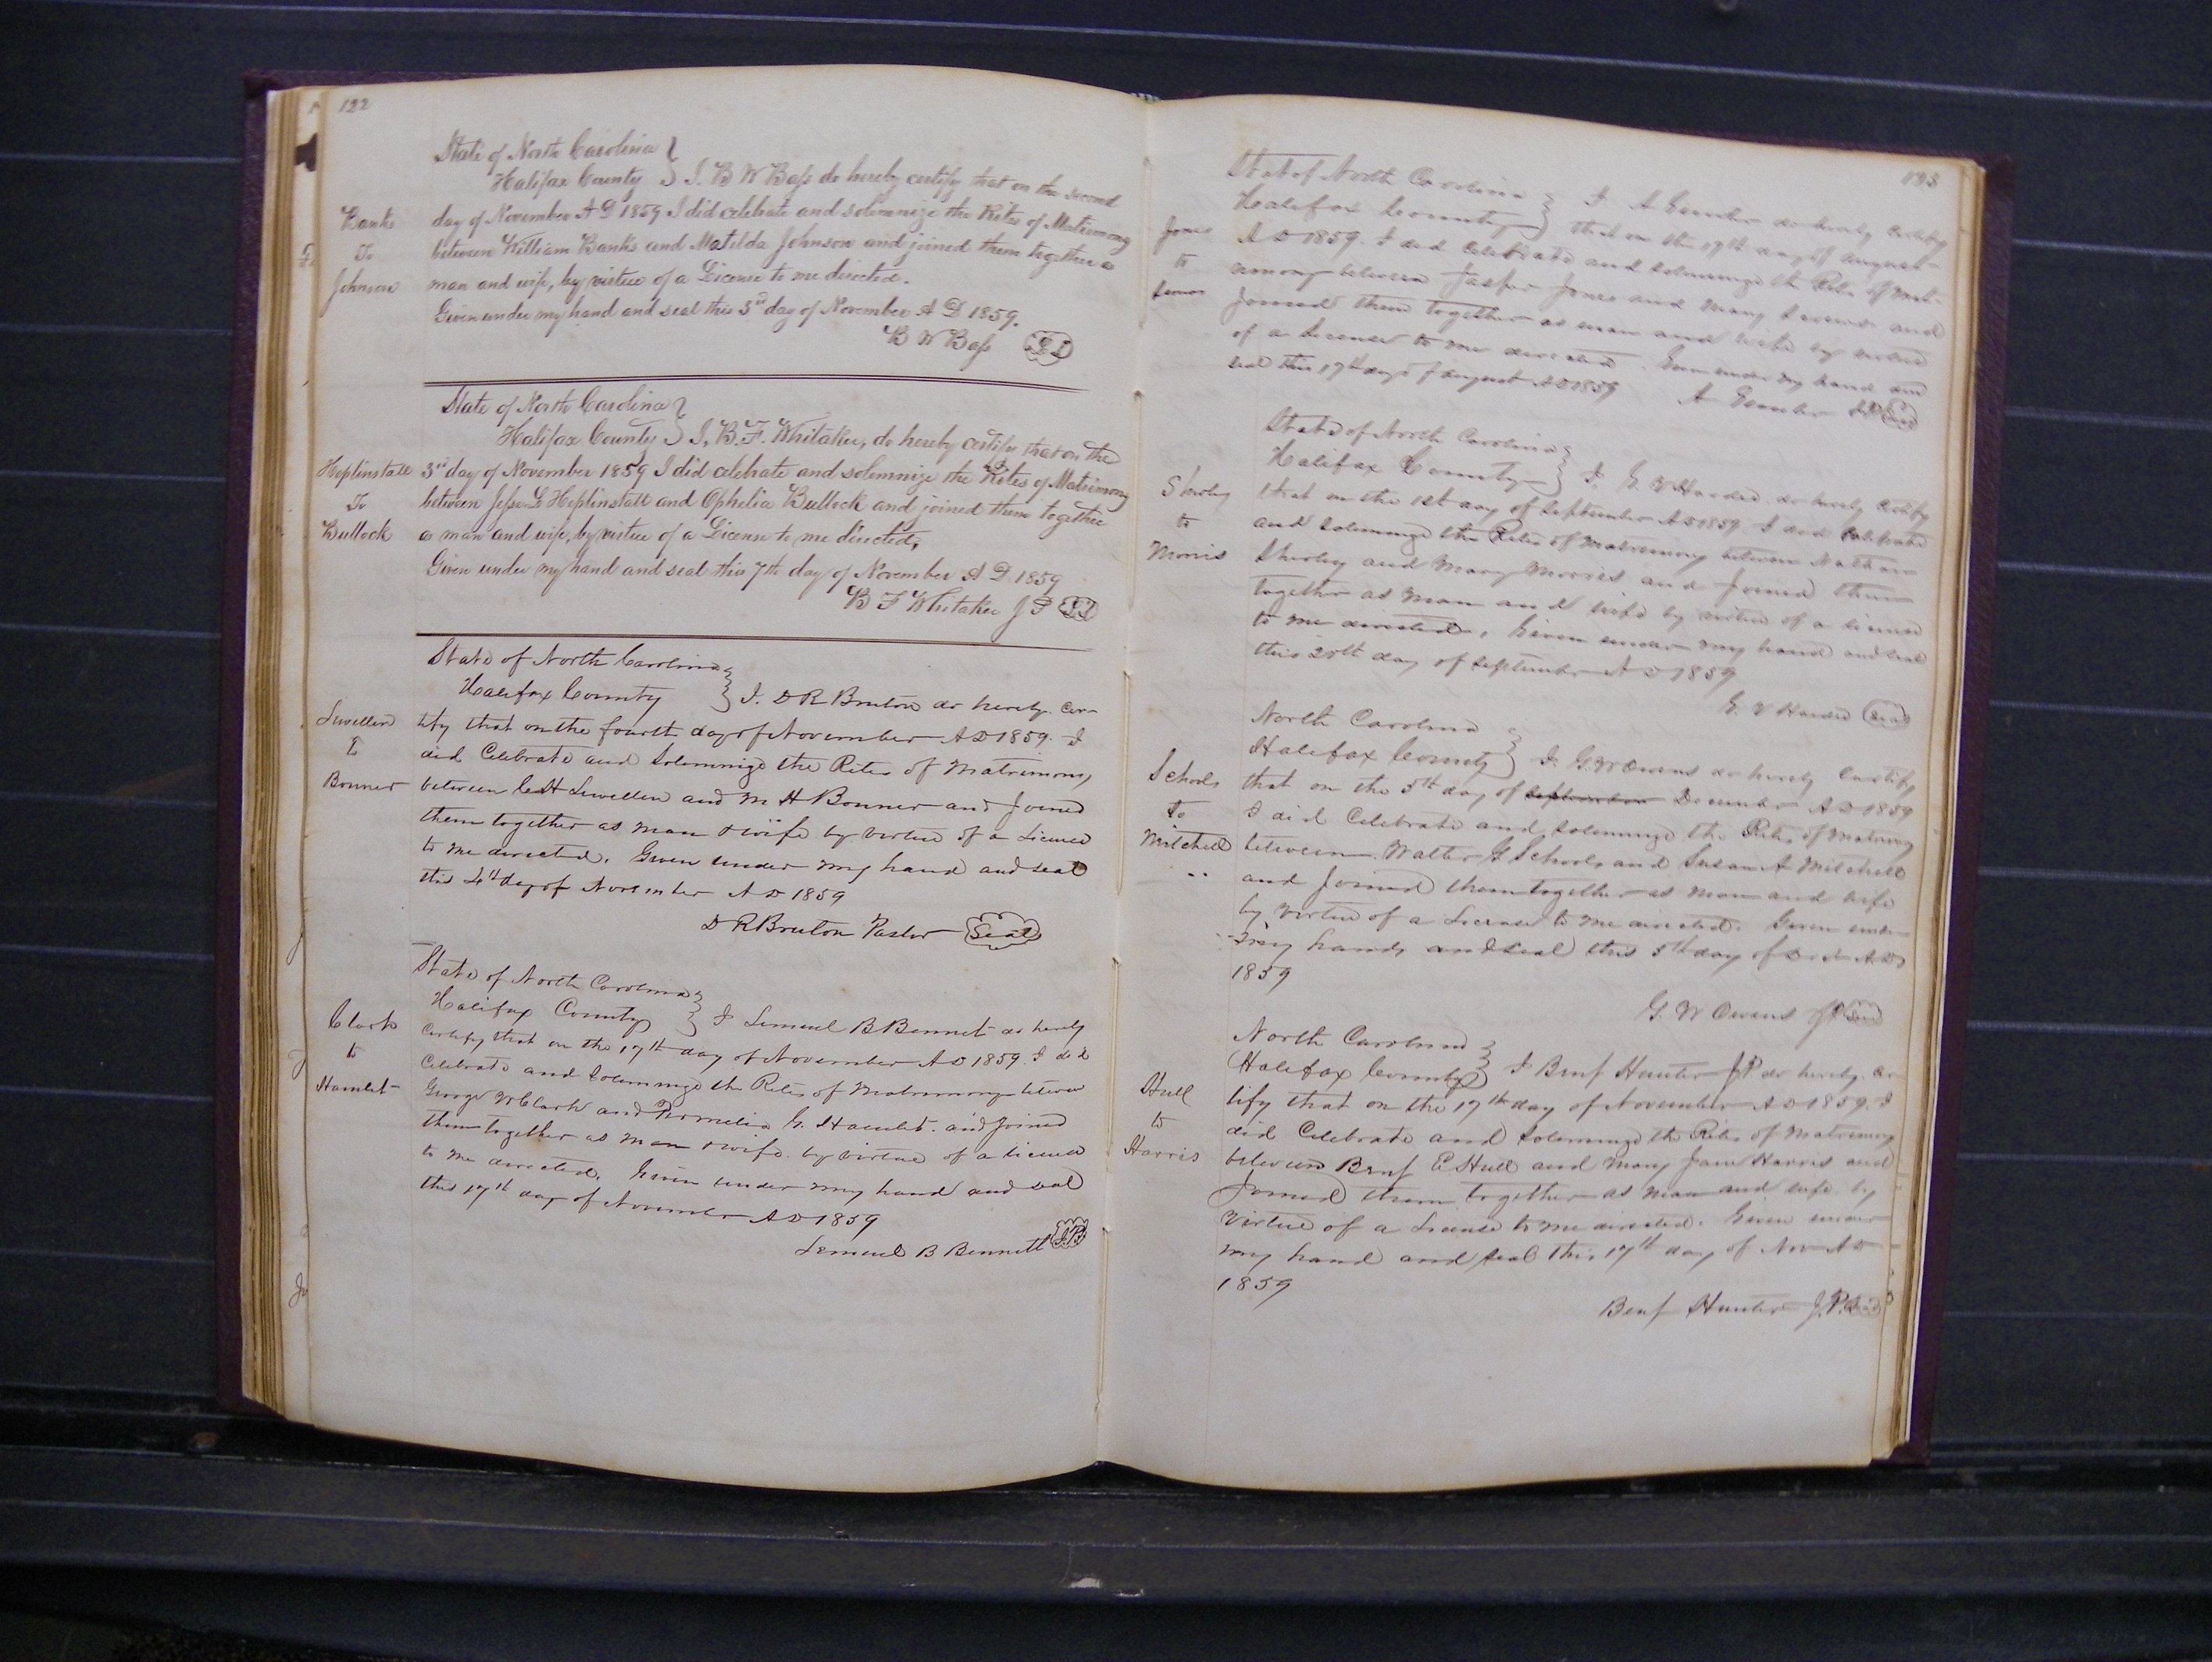 122
State of North Carolina
Halifax County } I. B W Bass do hereby certify that on the second
Banks
To
Johnson
day of November A D 1859 I did celebrate and solemnize the Rites of Matrimony
between William Banks and Matilda Johnson and joined them together as
man and wife, by virtue of a License to me directed.
Given under my hand and seal this 3rd day of November A D 1859.
B W Bass
State of North Carolina
Halifax County } I, B. F. Whitaker, do hereby certify that on the
Heplinstall
To
Bullock
3rd day of November 1859 I did celebrate and solemnize the Rites of Matrimony
between Jesse L Heplinstall and Ophelia Bullock and joined them together
as man and wife, by virtue of a License to me directed,
Given under my hand and seal this 7th day of November A D. 1859
B F Whitaker J P
State of North Carolina
Halifax County } I. D R Bruton do hereby cer-
Lewellen
To
Bonner
tify that on the fourth day of November A D 1859. I
did Celebrate and Solemnize the Rites of Matrimony
between C H Lewellen and M H Bonner and Joined
them together as man & wife by virtue of a License
to me directed. Given under my hand and seal
this 4th day of November A D 1859
D R Bruton Pastor Seal
State of North Carolina
Halifax County } I Lemuel B Bennet do hereby
Clark
to
Hamlet
Certify that on the 17th day of November A D 1859. I did
Celebrate and Solemnize the Rites of Matrimony between
George W Clark and Permelia G. Hamlet. and Joined
them together as man & wife. by virtue of a License
to me directed. Given under my hand and seal
this 17th day of November A D 1859
Lemuel B Bennett J.P.
123
State of North Carolina
Halifax County } I A do hereby Certify
Jones
to
that on the 17th day of August
A D 1859. I did Celebrate and Solemnize the Rites of Mat-
rimony between Jasper Jones and Mary and
Joined them together as man and wife by virtue
of a License to me directed. Given under my hand and
seal this 17th day of August A D 1859
A J.P. Seal
State of North Carolina
Halifax County } I. G. V Harden do hereby Certify
Shirley
to
Morris
that on the 1st day of September A D 1859 I did Celebrate
and Solemnize the Rites of Matrimony between Nathan
Shirley and Mary Morris and Joined them
together as Man and wife by virtue of a License
to me directed. Given under my hand and seal
this 20th day of September A D 1859
G. V Harden Seal
North Carolina
Halifax County } I. G. W Owens do hereby Certify
Schools
to
Mitchell
that on the 5th day of September December A D 1859
I did Celebrate and Solemnize the Rites of Matrimony
between Walter G Schools and Susan A Mitchell
and Joined them together as man and wife
by Virtue of a License to me directed. Given under
my hand and seal this 5th day of Dec A.D.
1859
G. W Owens J P Seal
North Carolina
Halifax County } I Benj Hunter J.P. do hereby Cer
Hull
to
Harris
tify that on the 17th day of November A D 1859. I
did Celebrate and Solemnize the Rites of Matrimony
between Benj E Hull and Mary Jane Harris and
Joined them together as man and wife by
Virtue of a License to me directed. Given under
my hand and seal this 17th day of Nov A D
1859
Benj Hunter J.P. Seal